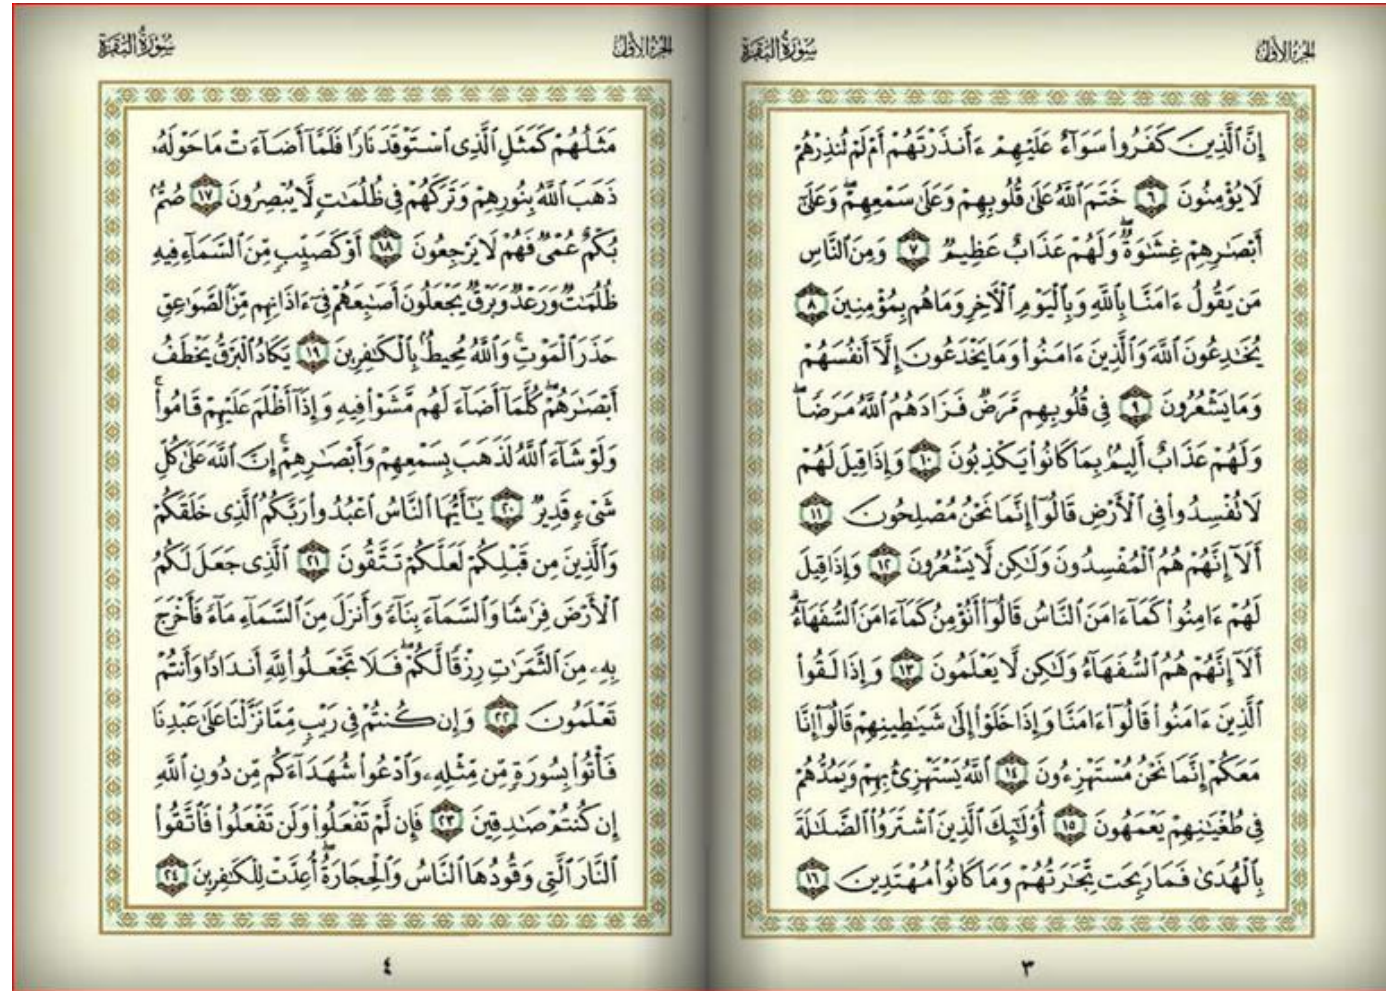 الجزء الأول سورة البقرة
إِنَّ ٱلَّذِينَ كَفَرُوا۟ سَوَآءٌ عَلَيْهِمْ ءَأَنذَرْتَهُمْ أَمْ لَمْ تُنذِرْهُمْ
لَا يُؤْمِنُونَ ٦ خَتَمَ ٱللَّهُ عَلَىٰ قُلُوبِهِمْ وَعَلَىٰ سَمْعِهِمْ ۖ وَعَلَىٰٓ
أَبْصَـٰرِهِمْ غِشَـٰوَةٌ ۖ وَلَهُمْ عَذَابٌ عَظِيمٌ ٧ وَمِنَ ٱلنَّاسِ
مَن يَقُولُ ءَامَنَّا بِٱللَّهِ وَبِٱلْيَوْمِ ٱلْـَٔاخِرِ وَمَا هُم بِمُؤْمِنِينَ ٨
يُخَـٰدِعُونَ ٱللَّهَ وَٱلَّذِينَ ءَامَنُوا۟ وَمَا يَخْدَعُونَ إِلَّآ أَنفُسَهُمْ
وَمَا يَشْعُرُونَ ٩ فِى قُلُوبِهِم مَّرَضٌ فَزَادَهُمُ ٱللَّهُ مَرَضًا ۖ
وَلَهُمْ عَذَابٌ أَلِيمٌۢ بِمَا كَانُوا۟ يَكْذِبُونَ ١٠ وَإِذَا قِيلَ لَهُمْ
لَا تُفْسِدُوا۟ فِى ٱلْأَرْضِ قَالُوٓا۟ إِنَّمَا نَحْنُ مُصْلِحُونَ ١١
أَلَآ إِنَّهُمْ هُمُ ٱلْمُفْسِدُونَ وَلَـٰكِن لَّا يَشْعُرُونَ ١٢ وَإِذَا قِيلَ
لَهُمْ ءَامِنُوا۟ كَمَآ ءَامَنَ ٱلنَّاسُ قَالُوٓا۟ أَنُؤْمِنُ كَمَآ ءَامَنَ ٱلسُّفَهَآءُ ۗ
أَلَآ إِنَّهُمْ هُمُ ٱلسُّفَهَآءُ وَلَـٰكِن لَّا يَعْلَمُونَ ١٣ وَإِذَا لَقُوا۟
ٱلَّذِينَ ءَامَنُوا۟ قَالُوٓا۟ ءَامَنَّا وَإِذَا خَلَوْا۟ إِلَىٰ شَيَـٰطِينِهِمْ قَالُوٓا۟ إِنَّا
مَعَكُمْ إِنَّمَا نَحْنُ مُسْتَهْزِءُونَ ١٤ ٱللَّهُ يَسْتَهْزِئُ بِهِمْ وَيَمُدُّهُمْ
فِى طُغْيَـٰنِهِمْ يَعْمَهُونَ ١٥ أُو۟لَـٰٓئِكَ ٱلَّذِينَ ٱشْتَرَوُا۟ ٱلضَّلَـٰلَةَ
بِٱلْهُدَىٰ فَمَا رَبِحَت تِّجَـٰرَتُهُمْ وَمَا كَانُوا۟ مُهْتَدِينَ ١٦
٣
الجزء الأول سورة البقرة
مَثَلُهُمْ كَمَثَلِ ٱلَّذِى ٱسْتَوْقَدَ نَارًا فَلَمَّآ أَضَآءَتْ مَا حَوْلَهُۥ
ذَهَبَ ٱللَّهُ بِنُورِهِمْ وَتَرَكَهُمْ فِى ظُلُمَـٰتٍ لَّا يُبْصِرُونَ ١٧ صُمٌّۢ
بُكْمٌ عُمْىٌ فَهُمْ لَا يَرْجِعُونَ ١٨ أَوْ كَصَيِّبٍ مِّنَ ٱلسَّمَآءِ فِيهِ
ظُلُمَـٰتٌ وَرَعْدٌ وَبَرْقٌ يَجْعَلُونَ أَصَـٰبِعَهُمْ فِىٓ ءَاذَانِهِم مِّنَ ٱلصَّوَٰعِقِ
حَذَرَ ٱلْمَوْتِ ۚ وَٱللَّهُ مُحِيطٌۢ بِٱلْكَـٰفِرِينَ ١٩ يَكَادُ ٱلْبَرْقُ يَخْطَفُ
أَبْصَـٰرَهُمْ ۖ كُلَّمَآ أَضَآءَ لَهُم مَّشَوْا۟ فِيهِ وَإِذَآ أَظْلَمَ عَلَيْهِمْ قَامُوا۟ ۚ
وَلَوْ شَآءَ ٱللَّهُ لَذَهَبَ بِسَمْعِهِمْ وَأَبْصَـٰرِهِمْ ۚ إِنَّ ٱللَّهَ عَلَىٰ كُلِّ
شَىْءٍ قَدِيرٌ ٢٠ يَـٰٓأَيُّهَا ٱلنَّاسُ ٱعْبُدُوا۟ رَبَّكُمُ ٱلَّذِى خَلَقَكُمْ
وَٱلَّذِينَ مِن قَبْلِكُمْ لَعَلَّكُمْ تَتَّقُونَ ٢١ ٱلَّذِى جَعَلَ لَكُمُ
ٱلْأَرْضَ فِرَٰشًا وَٱلسَّمَآءَ بِنَآءً وَأَنزَلَ مِنَ ٱلسَّمَآءِ مَآءً فَأَخْرَجَ
بِهِۦ مِنَ ٱلثَّمَرَٰتِ رِزْقًا لَّكُمْ ۖ فَلَا تَجْعَلُوا۟ لِلَّهِ أَندَادًا وَأَنتُمْ
تَعْلَمُونَ ٢٢ وَإِن كُنتُمْ فِى رَيْبٍ مِّمَّا نَزَّلْنَا عَلَىٰ عَبْدِنَا
فَأْتُوا۟ بِسُورَةٍ مِّن مِّثْلِهِۦ وَٱدْعُوا۟ شُهَدَآءَكُم مِّن دُونِ ٱللَّهِ
إِن كُنتُمْ صَـٰدِقِينَ ٢٣ فَإِن لَّمْ تَفْعَلُوا۟ وَلَن تَفْعَلُوا۟ فَٱتَّقُوا۟
ٱلنَّارَ ٱلَّتِى وَقُودُهَا ٱلنَّاسُ وَٱلْحِجَارَةُ ۖ أُعِدَّتْ لِلْكَـٰفِرِينَ ٢٤
٤